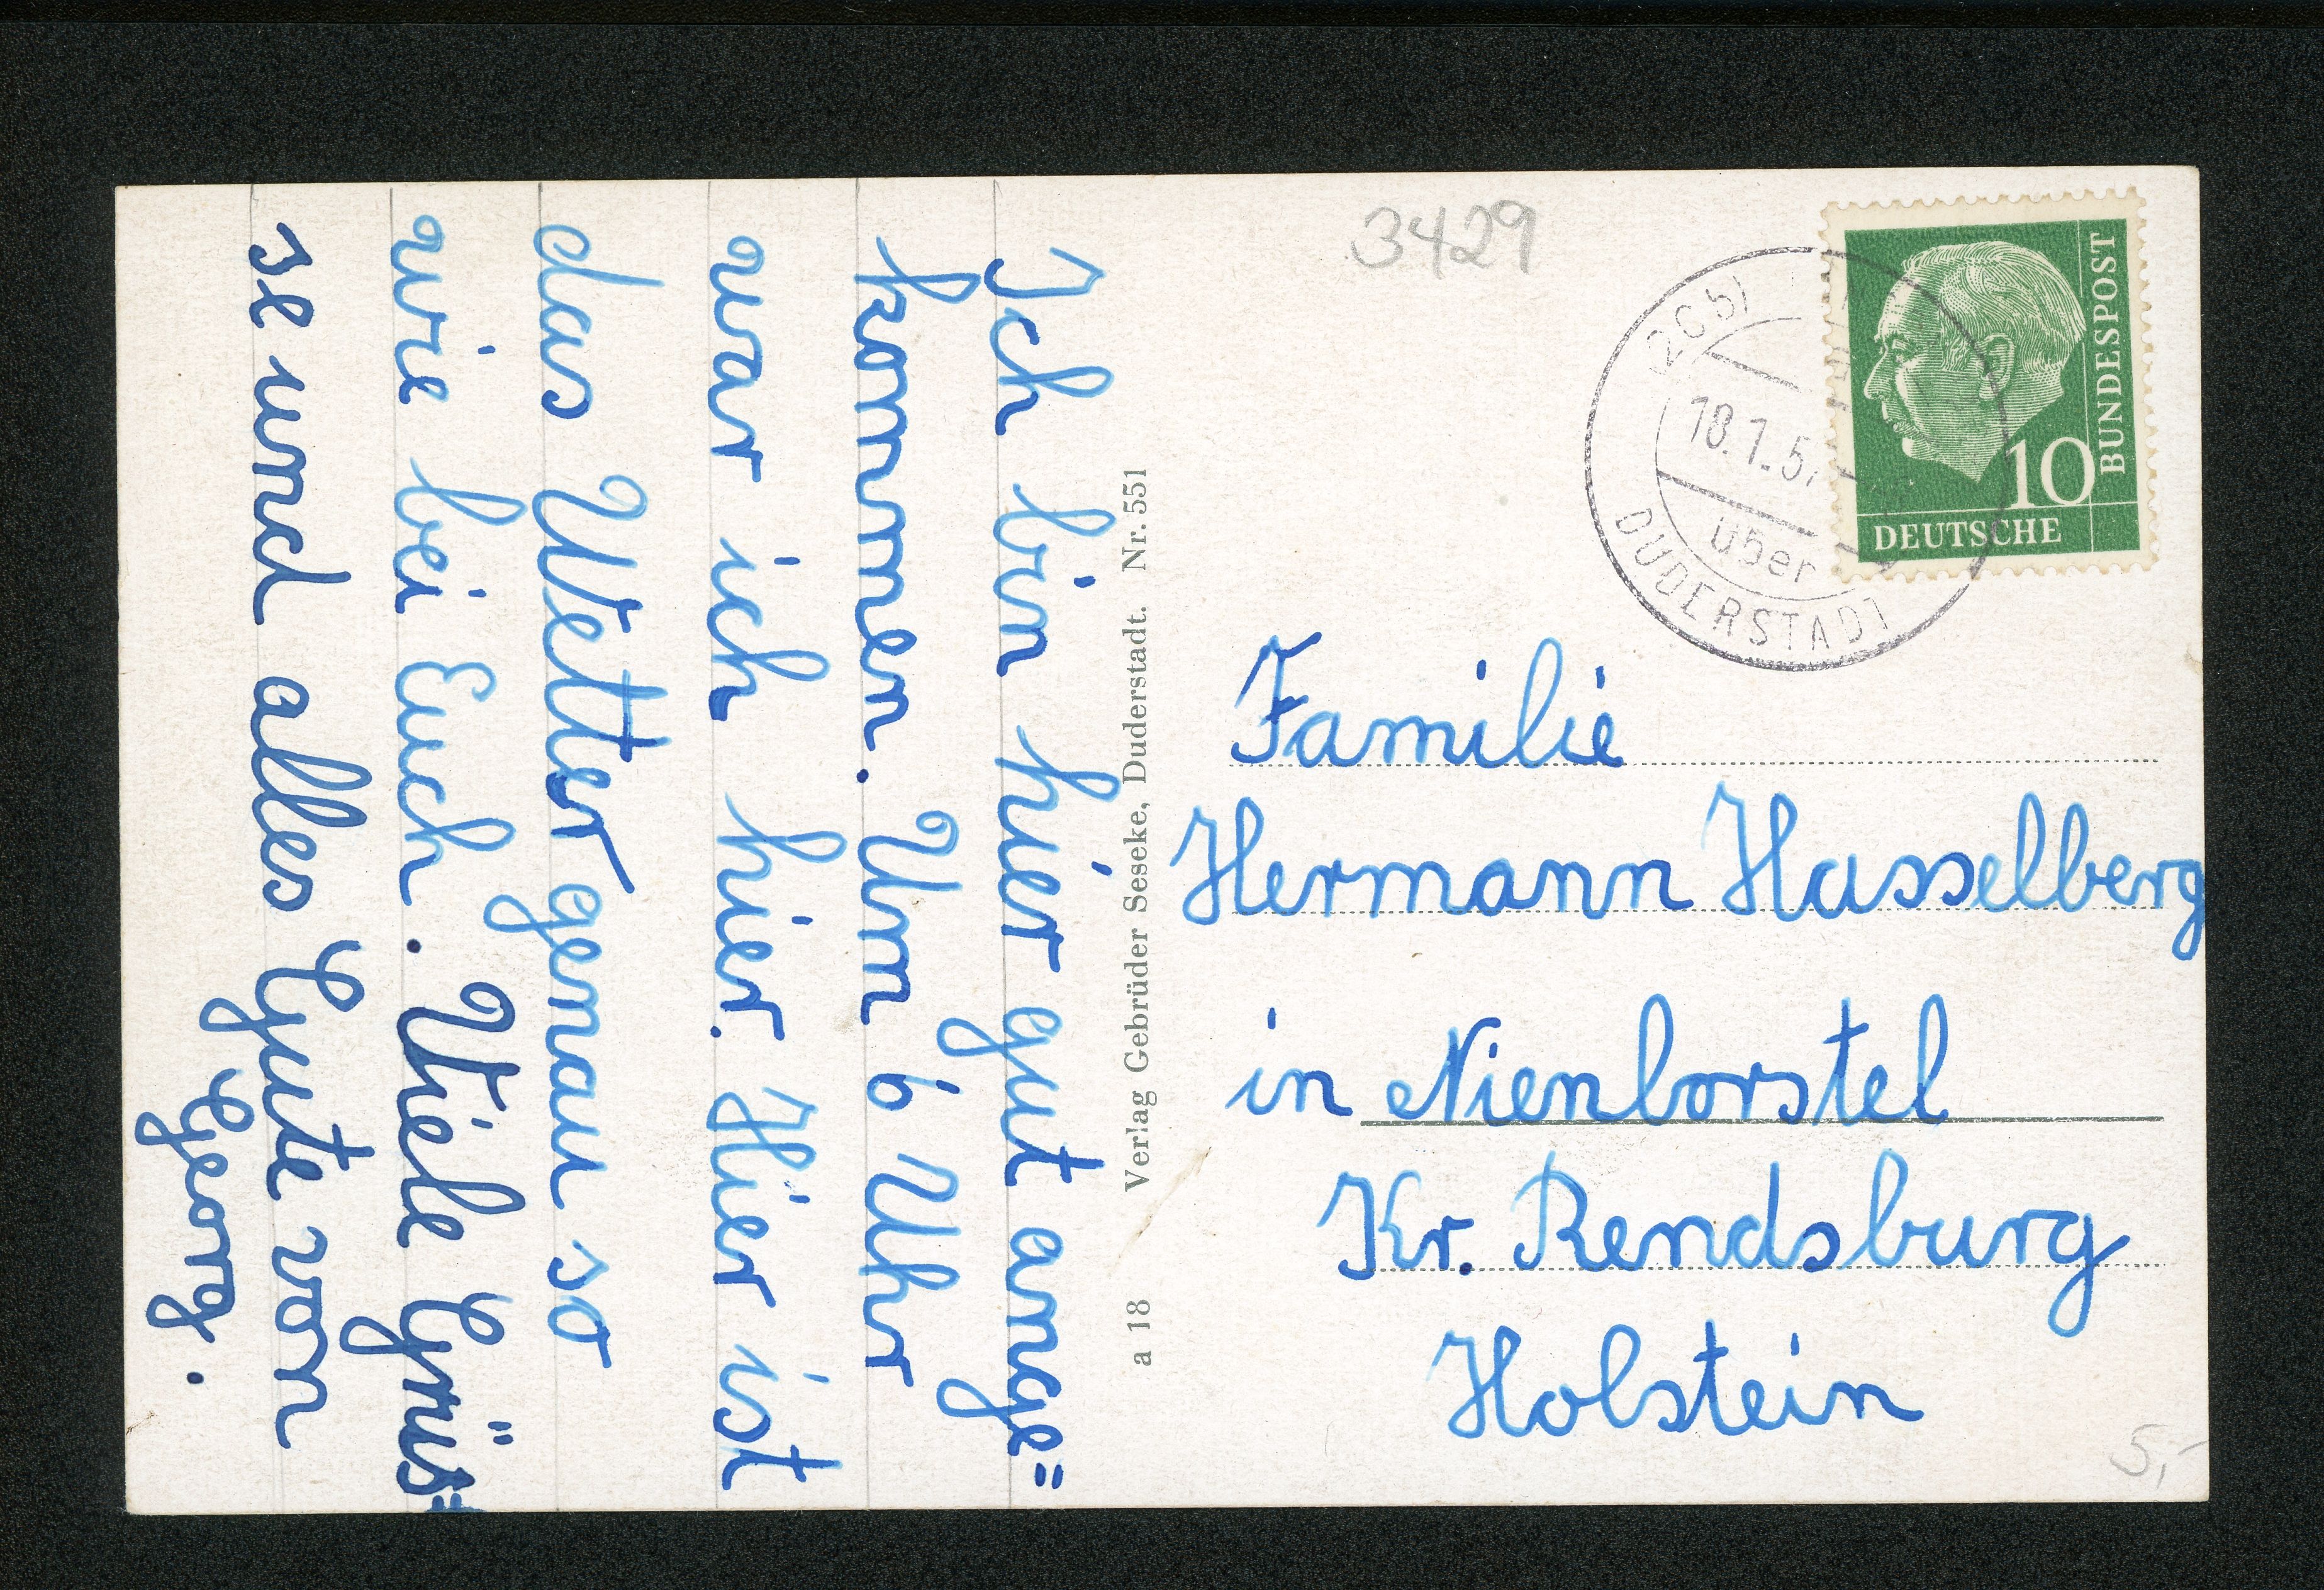 Ich bin hier gut ange=
kommen. Um 6 Uhr
war ich hier. Hier ist
das Wetter genau so
wie bei Euch. Viele Grüs=
se und alles Gute von
Georg.
a 18 Verlag Gebrüder Seseke, Duderstadt. Nr. 551
3429
(20b)
18.1.5
über
DUDERSTADT
10
DEUTSCHE
BUNDESPOST
Familie
Hermann Hasselberg
in Nienborstel
Kr. Rendsburg
Holstein
5,-